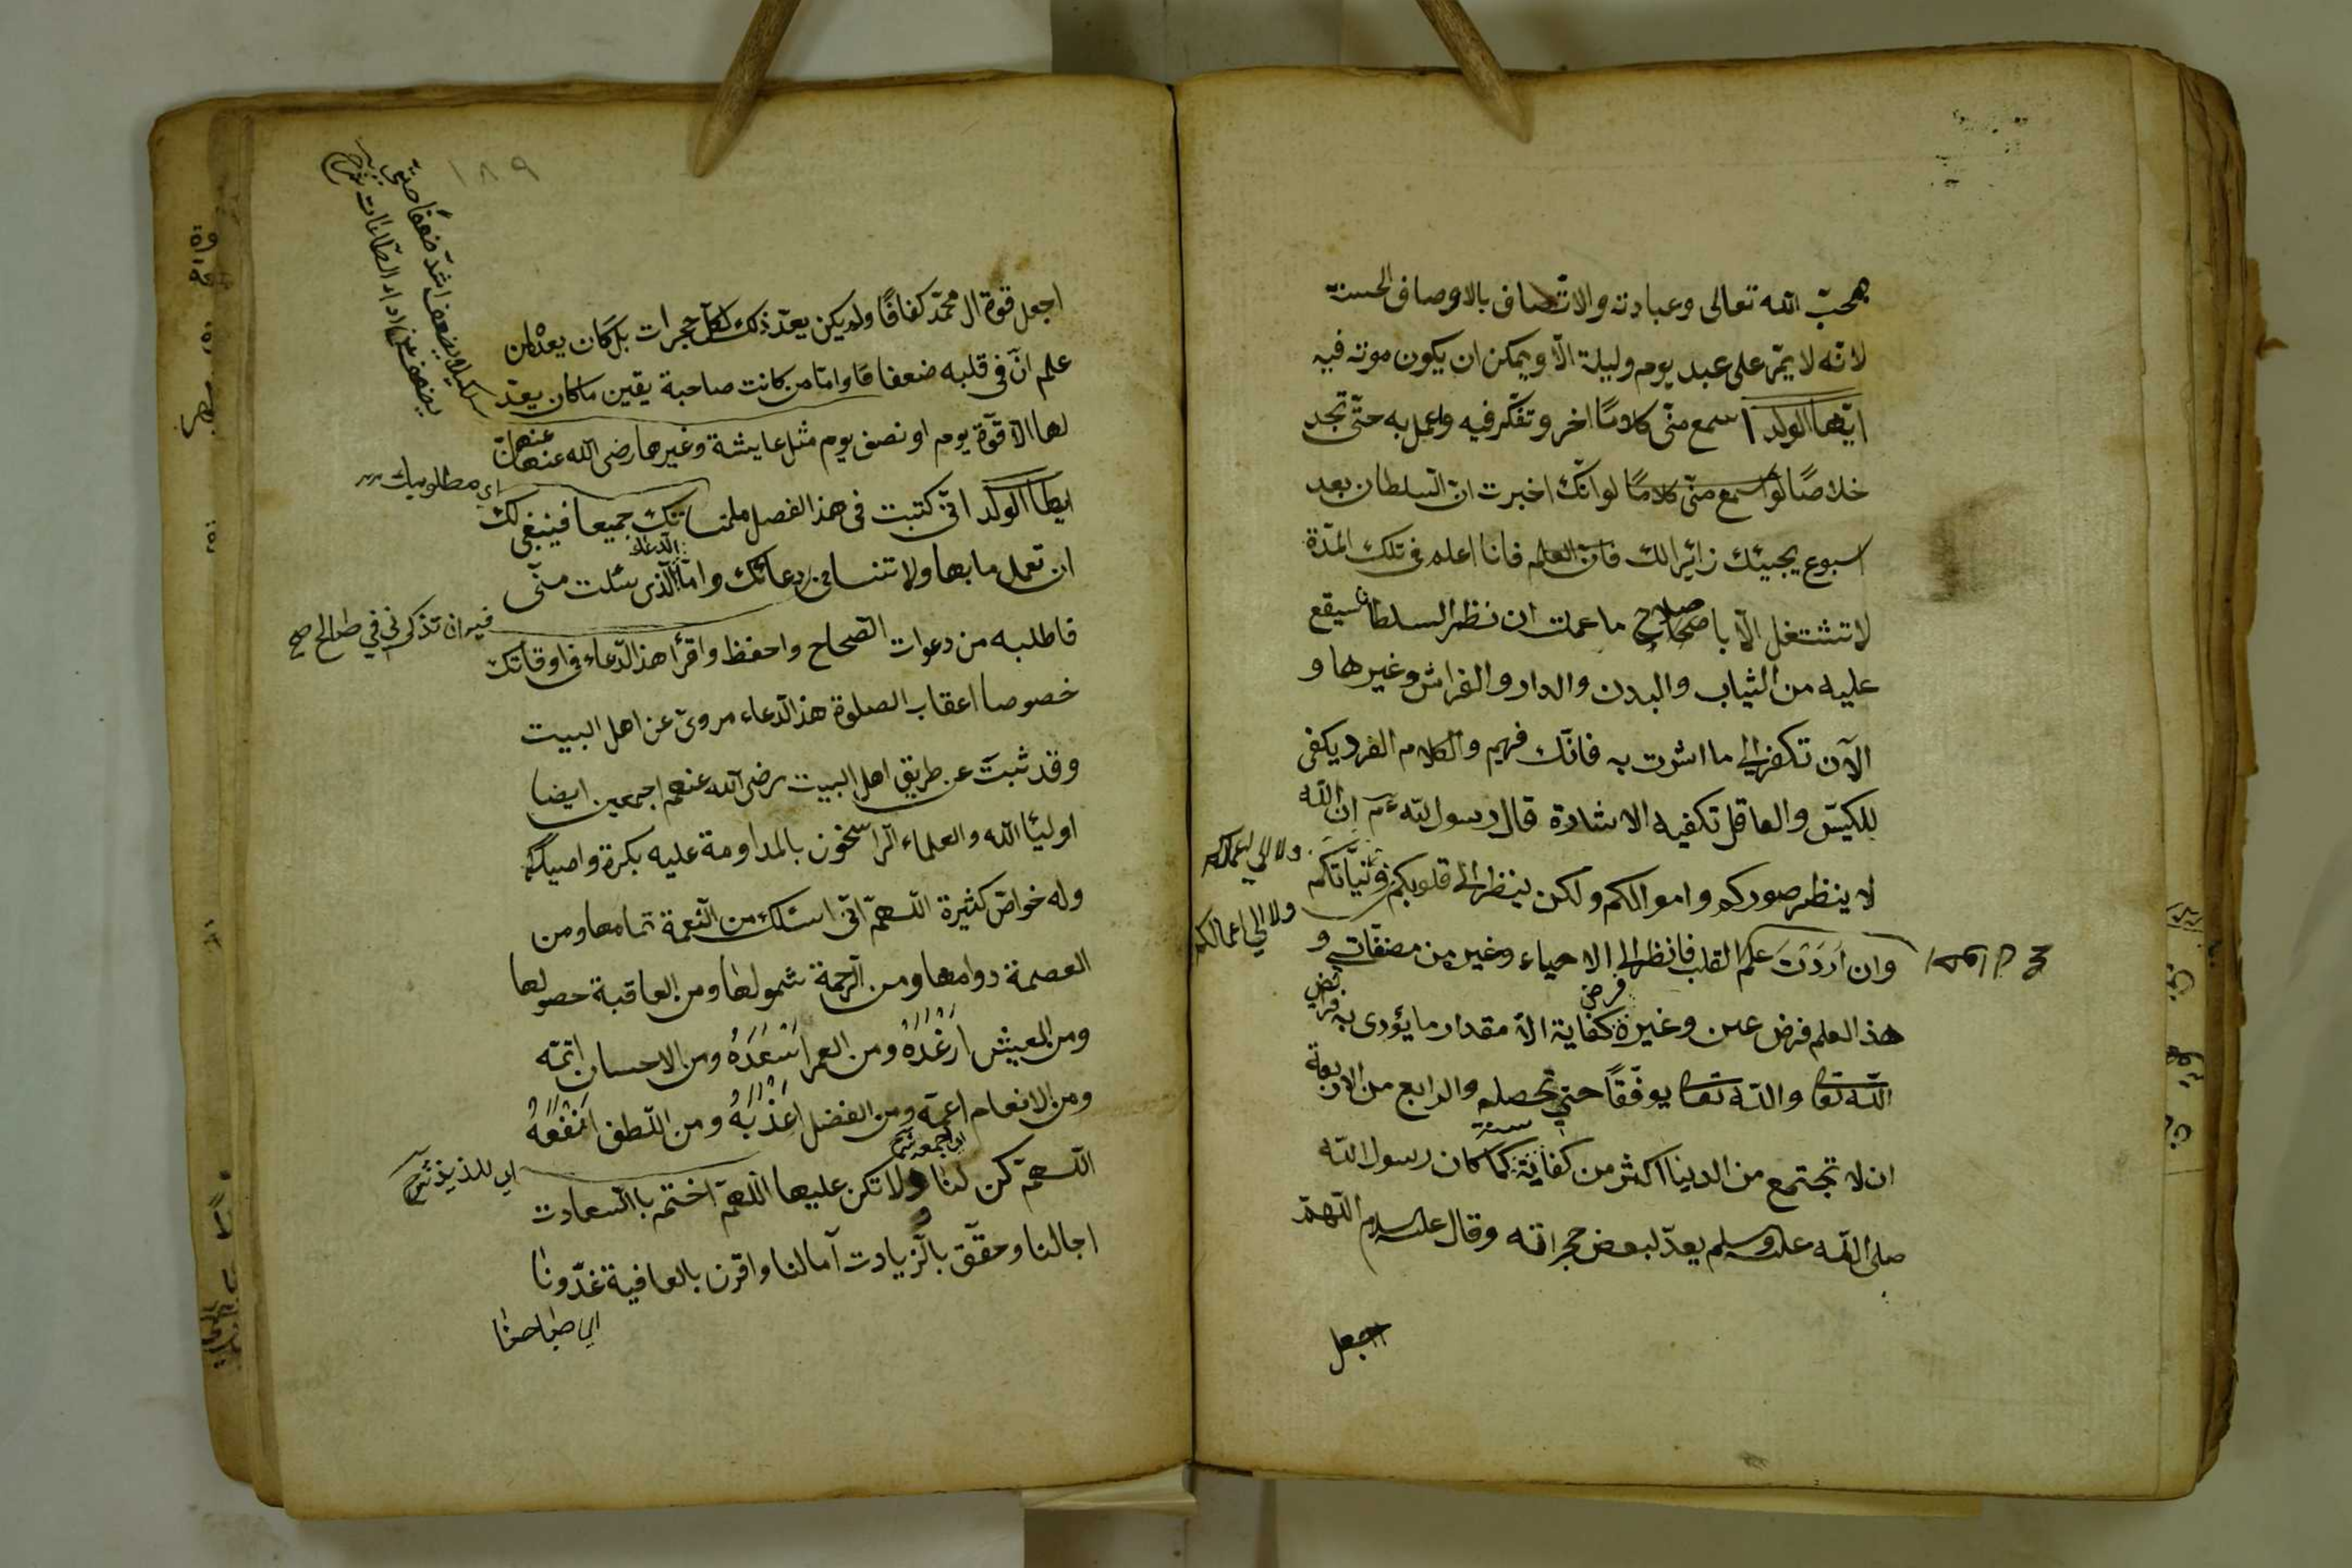 بمحبّة الله تعالى وعبادته والاتّصاف بالاوصاف الحسنة
لانّه لا يمرّ على عبد يوم وليلة الّا ويمكن ان يكون موته فيه
ايّها الولد اسمع منّى كلامًا اخر وتفكّر فيه واعمل به حتّى تجد
خلاصًا لو اسمع منّى كلامًا لو انّك اخبرت انّ السلطان بعد
اسبوع يجيئك زائرا لك فانّ العلم فانا اعلم فى تلك المدّة
لا تشتغل الّا باصلاح ما عملت ان نظر السلطان سيقع
عليه من الثياب والبدن والدار والفراش وغيرها و
الآن تكفر الى ما اشرت به فانّك فهيم والكلام الفرد يكفى
للكيّس والعاقل تكفيه الاشارة قال رسول الله عم ان الله
لا ينظر صوركم واموالكم ولكن ينظر الى قلوبكم ونيّاتكم
ولا الى اعمالكم
ولا الى اعمالكم
وان اَرَدْتَ علم القلب فانظر الى الاحياء وغيره من مصنفاتى و
هذا العلم فرض عين وغيره فرض كفاية الّا مقدار ما يؤدى به فرض
الله تعا والله تعا يوفّقًا حتى تحصله والرابع من الاربعة
ان لا تجتمع من الدينا اكثر من كفاية سنة كما كان رسول الله
صلى الله عليه وسلم يعدّ لبعض حجراته وقال عليه السلام اللّهمّ
اجعل
١٨٩
اجعل قوة ال محمّد كفافًا ولم يكن يعدّ ذلك لكلّ حجرات بل كان يعدّ لمن
علم انّ فى قلبه ضعفا مّا وامّا من كانت صاحبة يقين ما كان يعدّ
لها الّا قوّة يوم او نصف يوم مثل عايشة وغيرها رضى الله عنهنّ
اي مطلوبك
ايها الولد انّى كتبت فى هذا الفصل ملتمساتك جميعا فينبغى لك
ان تعمل ما بها ولا تنسانى فى دعائك وامّا الدعاء الّذى سئلت منّى
فيه ان تذكرنى في صالح
فاطلبه من دعوات الصّحاح واحفظ واقرأ هذا الدّعاء فى اوقاتك
خصوصا اعقاب الصلوة هذا الدّعاء مروىّ عن اهل البيت
وقد ثبت عن طريق اهل البيت رضى الله عنهم اجمعين ايضا
اوليئا الله والعلماء الرّاسخون بالمداومة عليه بكرة واصيلا
وله خواصّ كثيرة اللّهمّ انّى اسئلك من النّعمة تمامها ومن
العصمة دوامها ومن الرّحمة شمولها ومن العاقبة حصولها
ومن العيش اَرْغَدَهُ ومن العمر اَسْعَدَهُ ومن الاحسان اتمّه
ومن الانعام اعمّه ومن الفضل اَعْذَبَهُ ومن اللّطف اَنْفَعَهُ
اي للذيذ
اللّهمّ كن لنا ولا تكن عليها اللّهمّ اختم بالسّعادت
اجالنا وحقّق بالزّيادت آمالنا واقرن بالعافية غدّونا
اي صباحنا